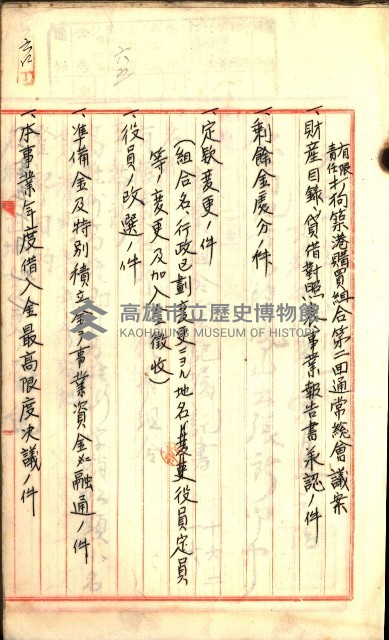 有限
責任打狗築港購買組合第二回通常総會議案
一、財産目録、貸借對照表、事業報告書承認ノ件
一、剰餘金處分ノ件
一、定欵変更ノ件
(組合名、行政区劃変更ニヨル地名ノ変更役員定員
等ノ変更及加入金徴收)
一、役員ノ改選ノ件
一、準備金及特別積立金ヲ事業資金ニ融通ノ件
一、本事業年度借入金最高限度決議ノ件
高雄市立歷史博物館
KAOHSIUNG MUSEUM OF HISTORY